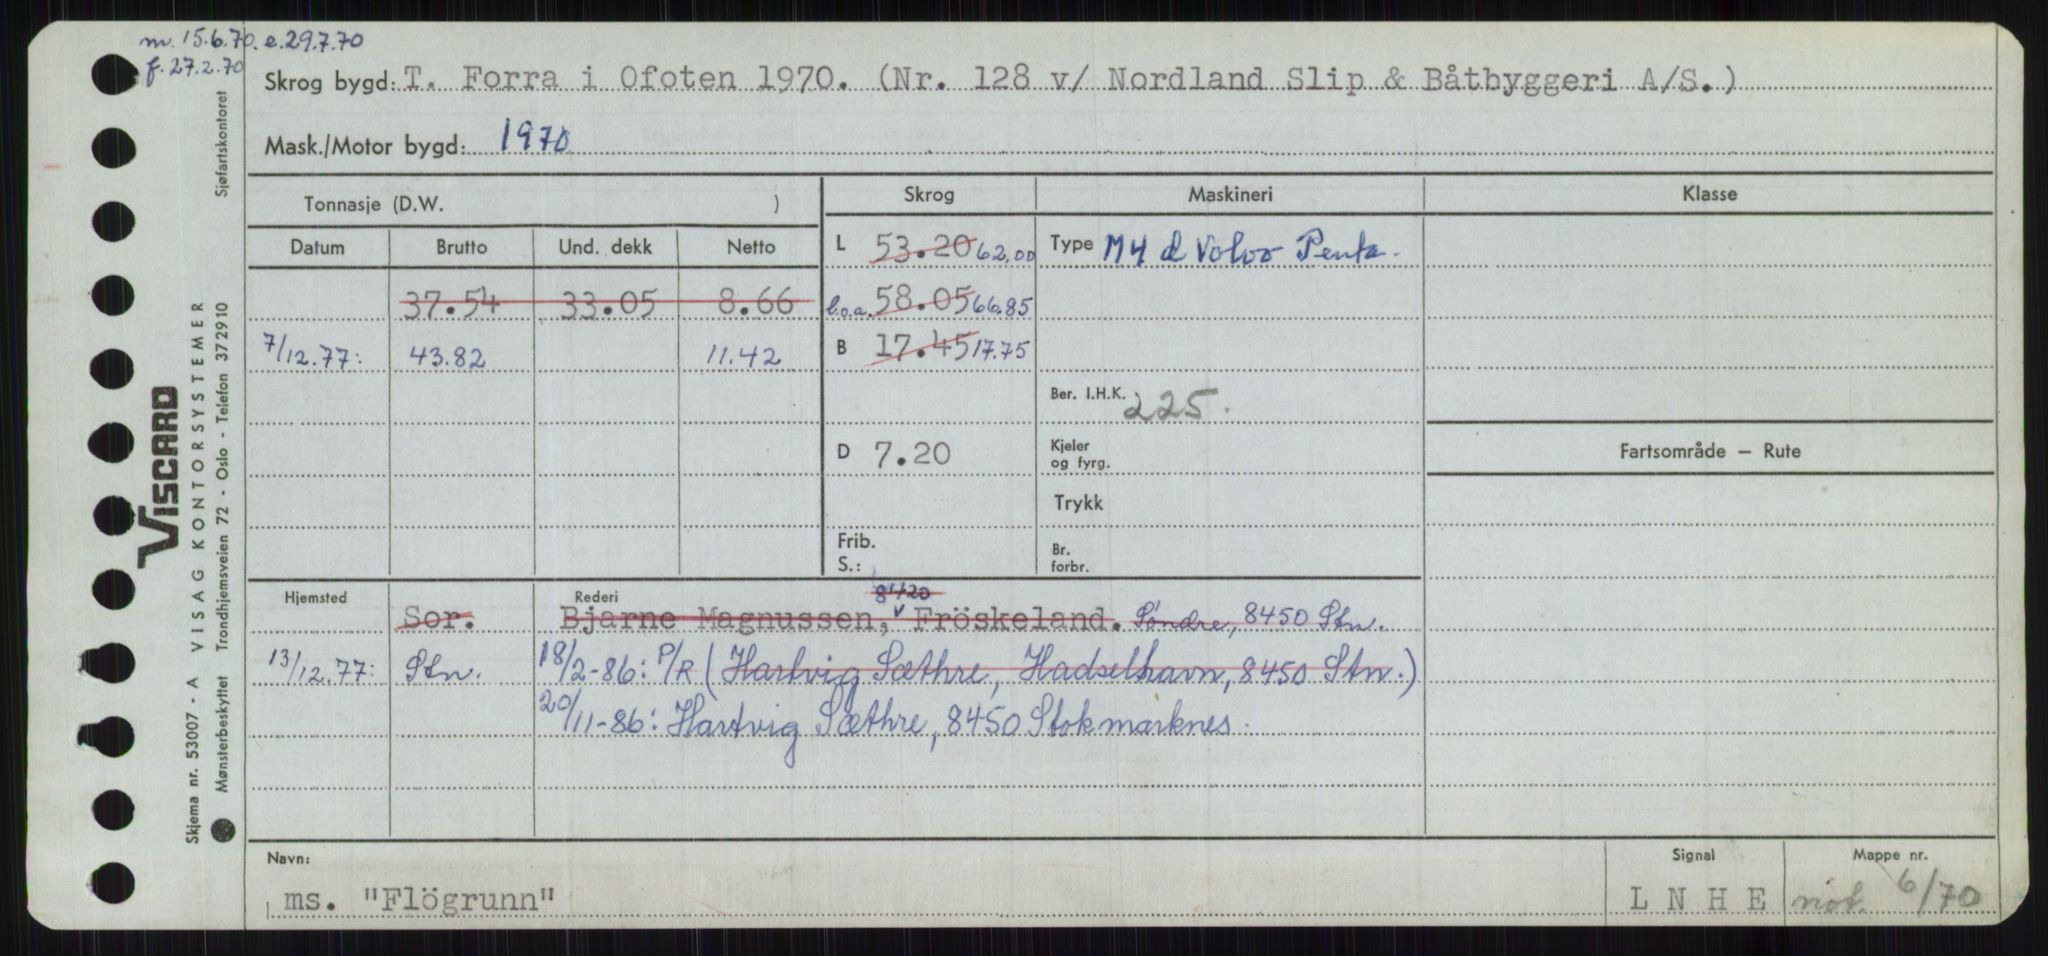 m. 15.6.70. e.29.7.70
f. 27.2.70
Skrog bygd: T. Forra i Ofoten 1970. (Nr. 128 v/ Nordland Slip & Båtbyggeri A/S.)
Mask./Motor bygd: 1970
Tonnasje (D.W. )
Skrog Maskineri Klasse
Datum Brutto Und. dekk Netto
L 53.20 62,00 Type M4 d Volvo Penta.
37.54 33.05 8.66 l.o.a. 58.05 66.85
7/12.77: 43.82 11.42 B 17.45 17.75
Ber. I.H.K. 225.
D 7.20 Kjeler og fyrg.
Fartsområde – Rute
Trykk
Frib.
S.:
Br. forbr.
Hjemsted Rederi 8420
Sor. Bjarne Magnussen, Fröskeland. Söndre, 8450 Stn.
13/12.77: Stn. 18/2-86: P/R (Hartvig Sæthre, Hadselhavn, 8450 Stn.)
20/11-86: Hartvig Sæthre, 8450 Stokmarknes.
Navn: Signal Mappe nr.
ms. "Flögrunn" L N H E not. 6/70
VISCARD
Skjema nr. 53007 - A VISAG KONTORSYSTEMER
Mønsterbeskyttet Trondhjemsveien 72 - Oslo - Telefon 372910 Sjøfartskontoret